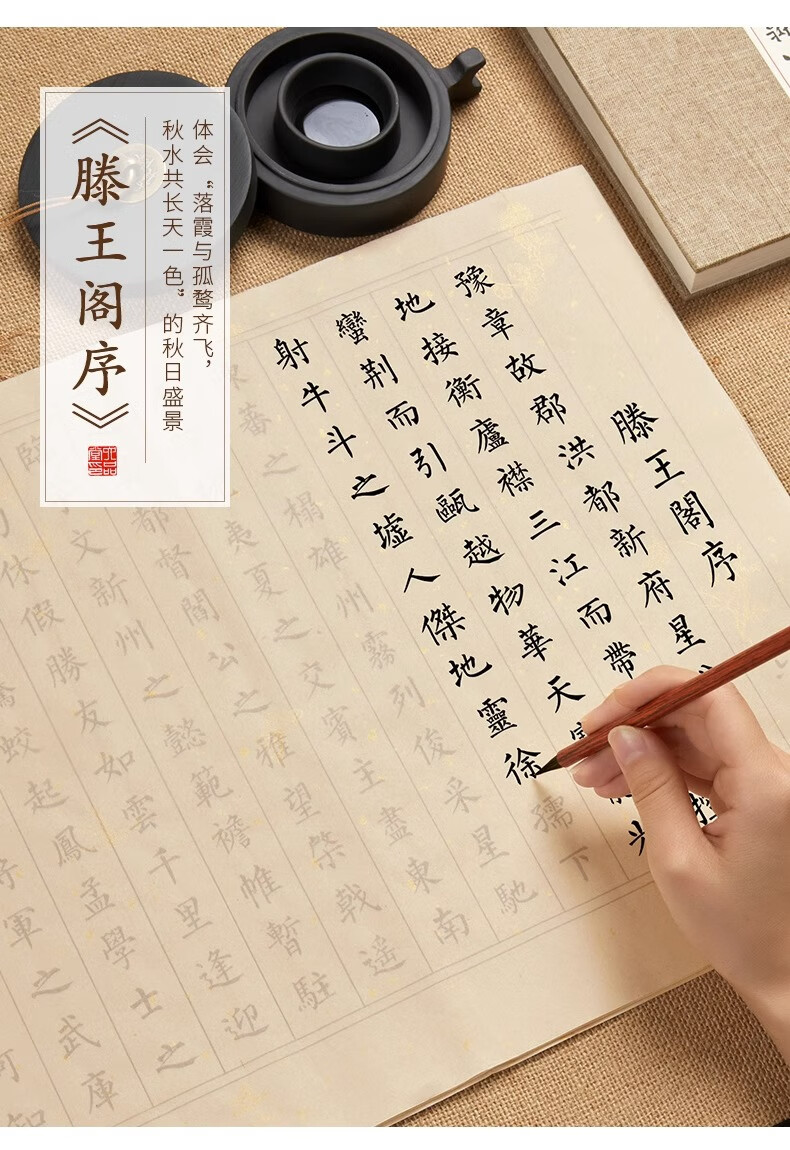 《滕王阁序》
体会“落霞与孤鹜齐飞,
秋水共长天一色”的秋日盛景
滕王閣序
豫章故郡洪都新府星
地接衡廬襟三江而帶
蠻荆而引甌越物華天
射牛斗之墟人傑地靈徐孺下
蕃之榻雄州霧列俊采星馳
夷夏之交賓主盡東南
都督閻公之雅望棨戟遙
文新州之懿範襜帷暫駐
休假勝友如雲千里逢迎
蛟起鳳孟學士之
軍之武庫